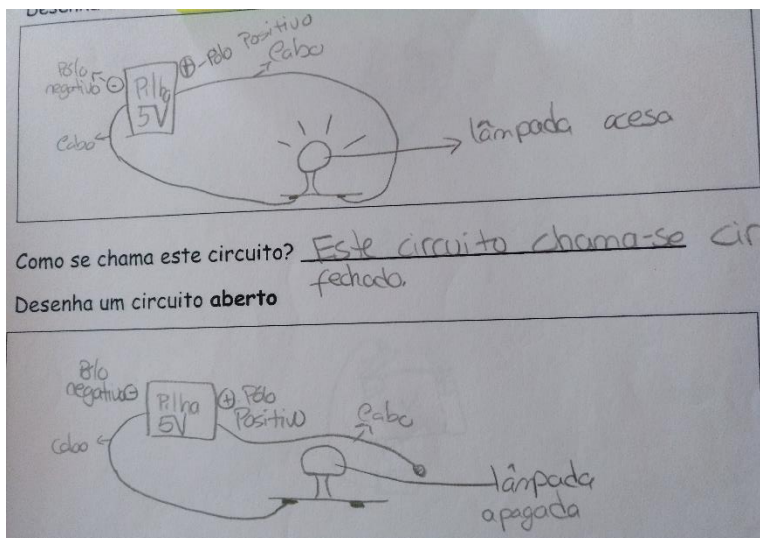 Pólo Positivo
Cabo
Pólo
negativo
Pilha
5V
Cabo
lâmpada acesa
Como se chama este circuito? Este circuito chama-se cir
fechado.
Desenha um circuito aberto
Pólo
negativo
Pilha
5V
Pólo
Positivo
Cabo
Cabo
lâmpada
apagada